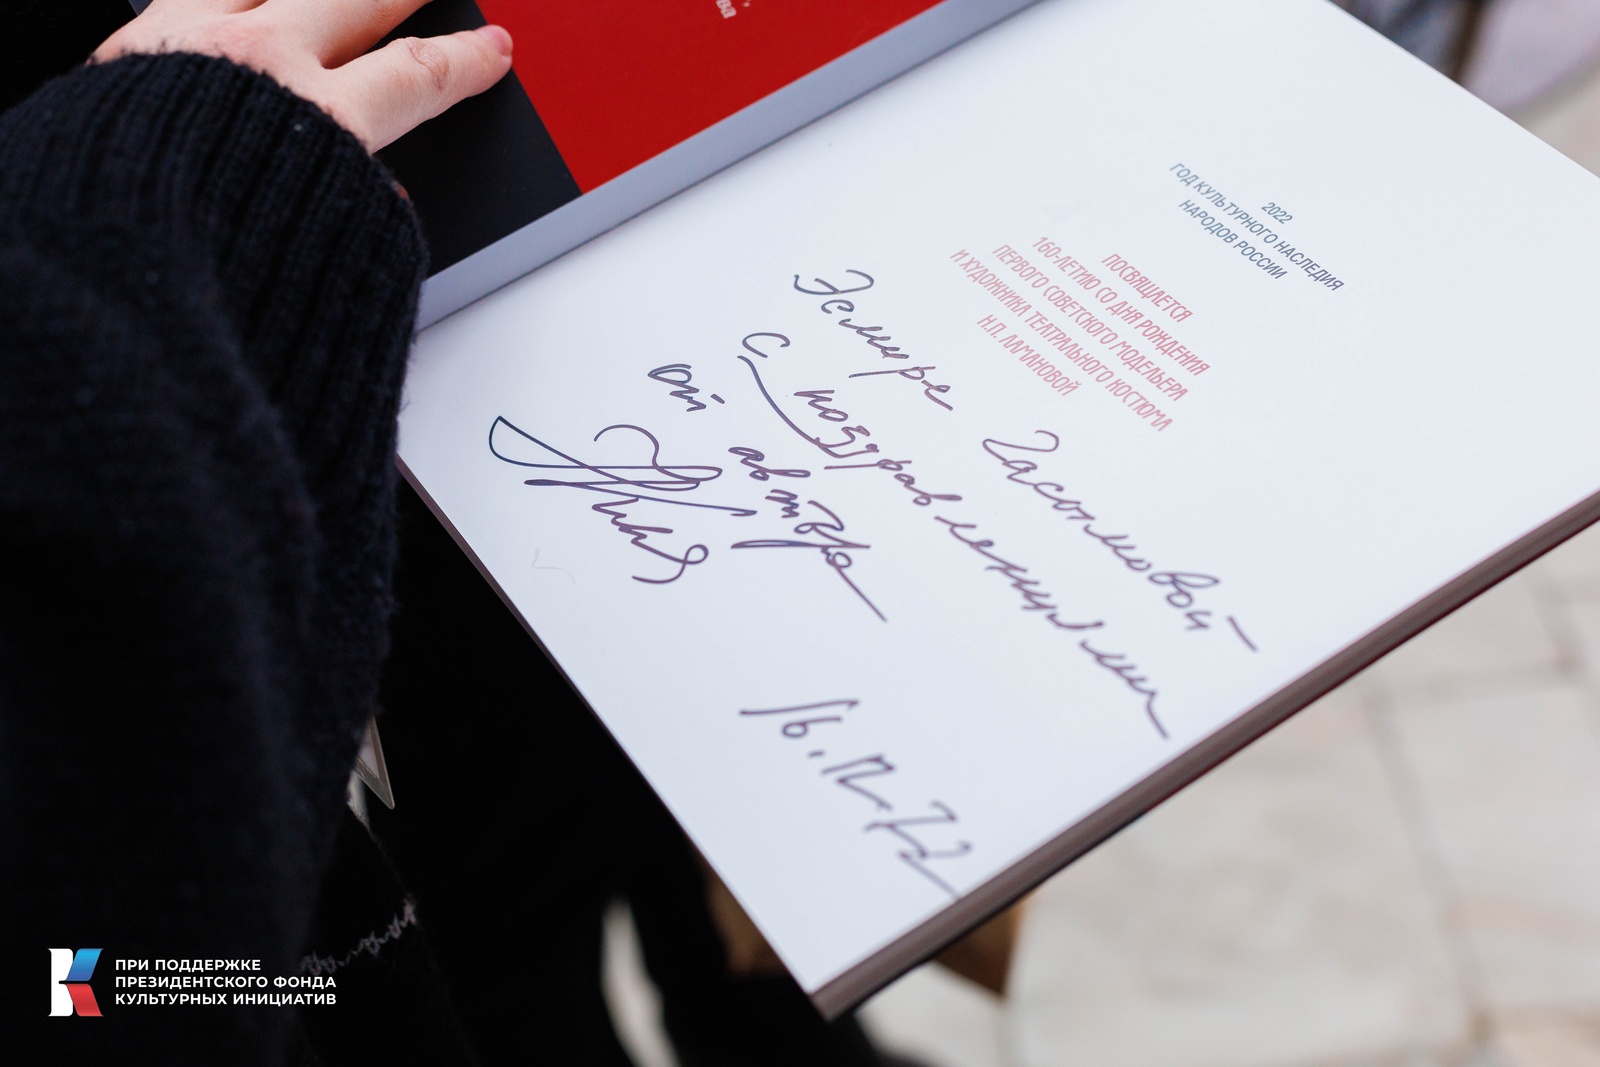 2022
ГОД КУЛЬТУРНОГО НАСЛЕДИЯ
НАРОДОВ РОССИИ
ПОСВЯЩАЕТСЯ
160-ЛЕТИЮ СО ДНЯ РОЖДЕНИЯ
ПЕРВОГО СОВЕТСКОГО МОДЕЛЬЕРА
И ХУДОЖНИКА ТЕАТРАЛЬНОГО КОСТЮМА
Н.П. ЛАМАНОВОЙ
Эльмире
С поздравлениями
от автора
16.12.22
ПРИ ПОДДЕРЖКЕ
ПРЕЗИДЕНТСКОГО ФОНДА
КУЛЬТУРНЫХ ИНИЦИАТИВ